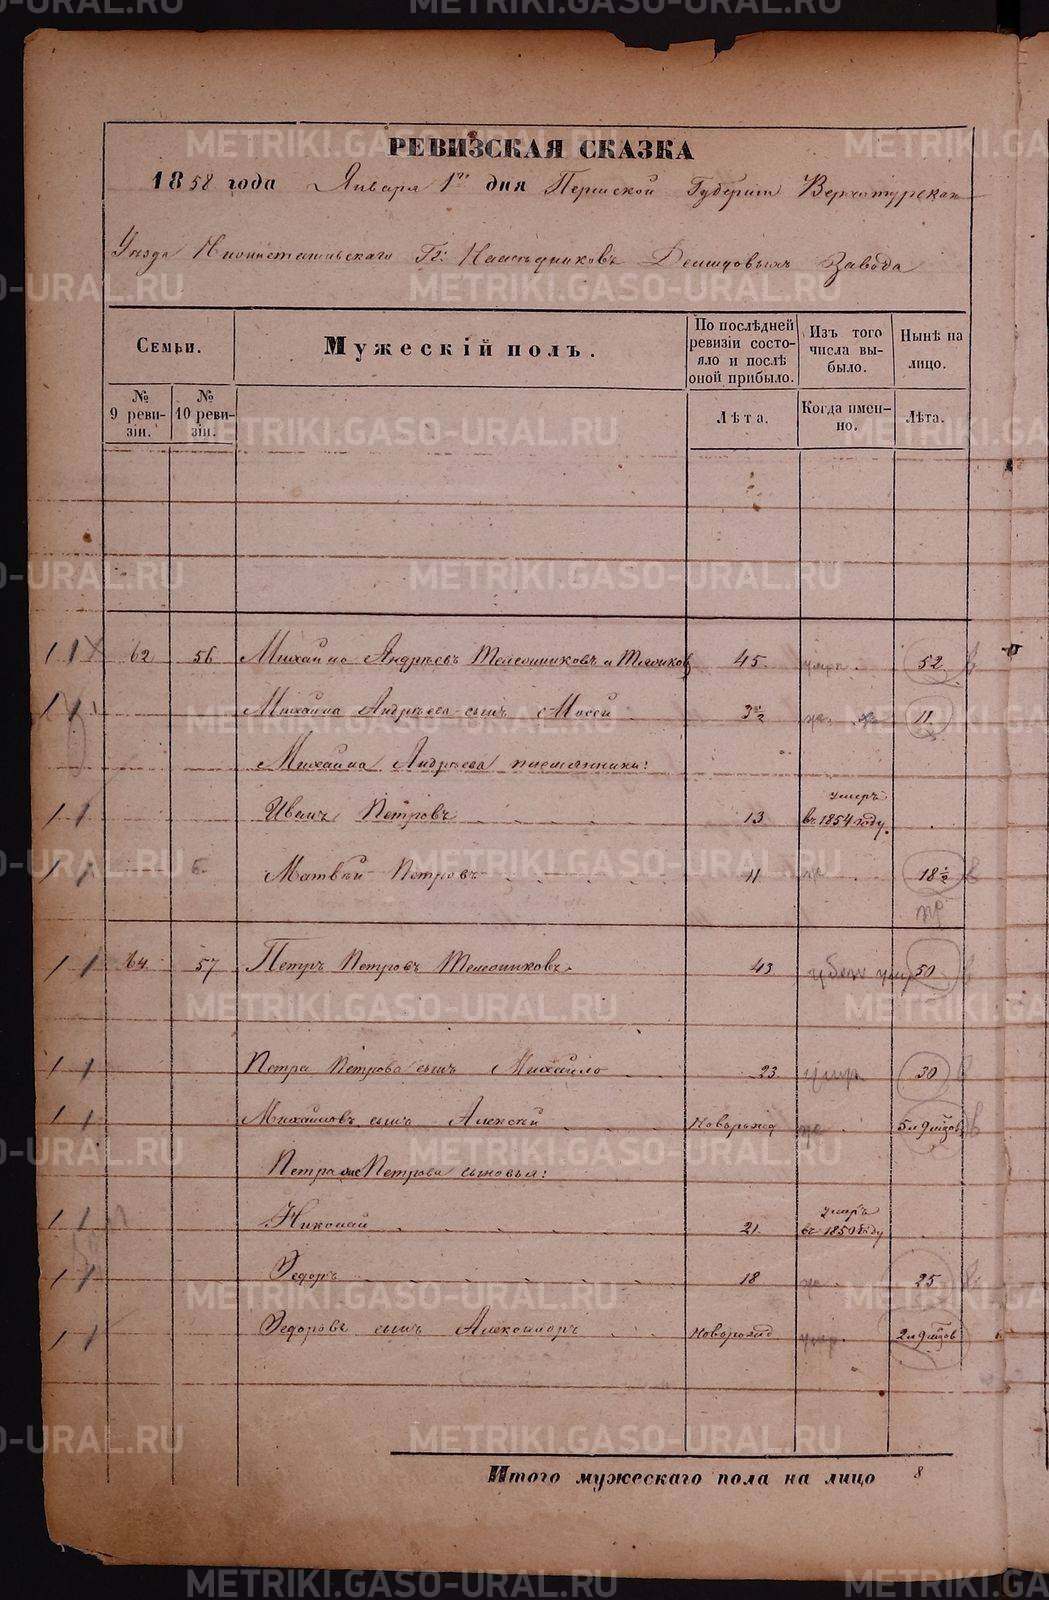 РЕВИЗСКАЯ СКАЗКА
1858 года Января 1го дня Пермской Губернiи Верхотурскаго
Уѣзда Нижнетагильскаго Гг: Наслѣдниковъ Демидовыхъ Завода
Семьи.
Мужескiй полъ.
По послѣдней ревизiи состояло и послѣ оной прибыло.
Изъ того числа выбыло.
Нынѣ на лицо.
№ 9 ревизiи.
№ 10 ревизiи.
Лѣта.
Когда именно.
Лѣта.
1 1 62 56 Михайло Андрѣевъ 45 умръ 52
1 1 Михайла Андрѣева сынъ Мосей 3 1/2 11
Михайла Андрѣева племянники:
1 1 Иванъ Петровъ 13 умеръ въ 1854 году
1 1 Матвѣй Петровъ 11 18 1/2
1 1 64 57 Петръ Петровъ 43 50
1 1 Петра Петрова сынъ Михайло 23 умр 30
1 1 Михайловъ сынъ Алексѣй новорожд 5 и 9 мѣсяцов
Петра Петрова сыновья:
1 1 Николай 21 умеръ въ 1850 году
1 1 Ѳедоръ 18 25
1 1 Ѳедоровъ сынъ Александръ новорожд умр. 2 и 9 мѣсяцов
Итого мужескаго пола на лицо 8
METRIKI.GASO-URAL.RU